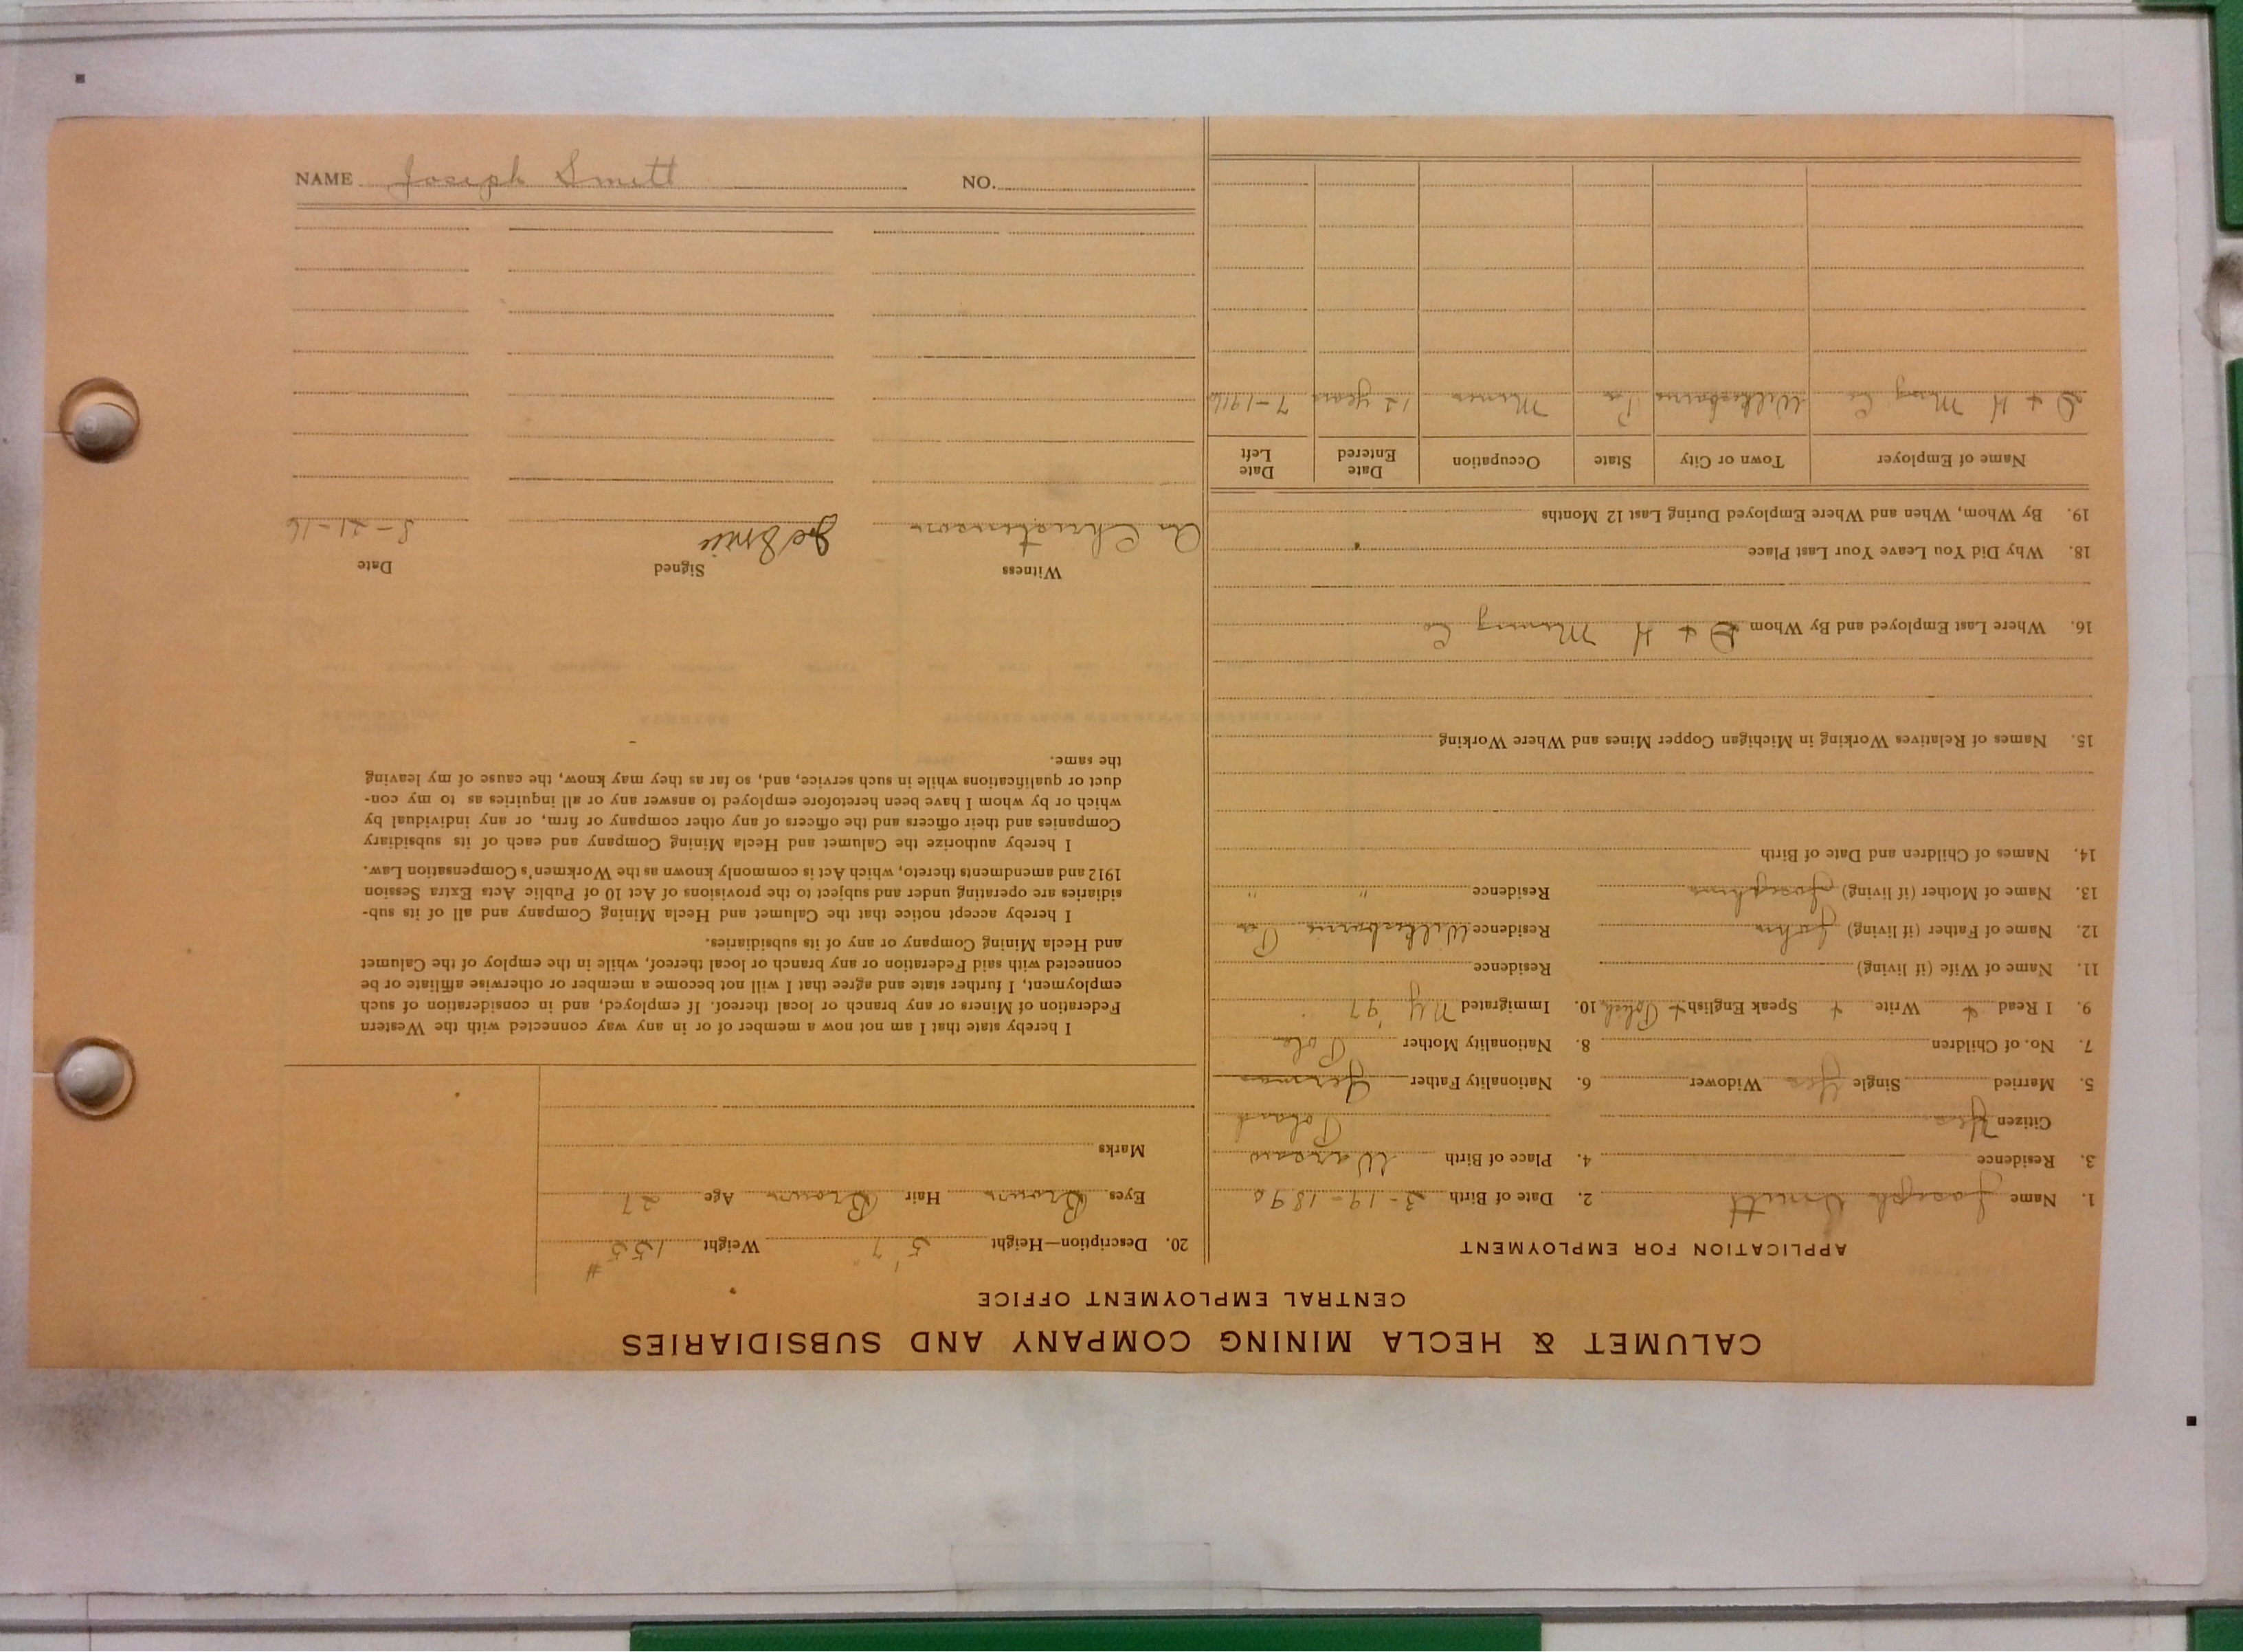 CALUMET & HECLA MINING COMPANY AND SUBSIDIARIES
CENTRAL EMPLOYMENT OFFICE
APPLICATION FOR EMPLOYMENT
1. Name Joseph Smitt 2. Date of Birth 3-19-1890
3. Residence 4. Place of Birth Warsaw
Citizen Yes Poland
5. Married Single Yes Widower 6. Nationality Father German
7. No. of Children 8. Nationality Mother Pole
9. I Read + Write + Speak English + Polish 10. Immigrated N Y '97
11. Name of Wife (if living) Residence
12. Name of Father (if living) John Residence Wilkesbarre Pa
13. Name of Mother (if living) Josephine Residence " "
14. Names of Children and Date of Birth
15. Names of Relatives Working in Michigan Copper Mines and Where Working
16. Where Last Employed and By Whom D + H Mining Co
18. Why Did You Leave Your Last Place
19. By Whom, When and Where Employed During Last 12 Months
Name of Employer Town or City State Occupation Date Entered Date Left
D + H Mining Co Wilkesbarre Pa Miner 12 years 7-1916
20. Description—Height 5' 7" Weight 155 #
Eyes Brown Hair Brown Age 27
Marks
I hereby state that I am not now a member of or in any way connected with the Western
Federation of Miners or any branch or local thereof. If employed, and in consideration of such
employment, I further state and agree that I will not become a member or otherwise affiliate or be
connected with said Federation or any branch or local thereof, while in the employ of the Calumet
and Hecla Mining Company or any of its subsidiaries.
I hereby accept notice that the Calumet and Hecla Mining Company and all of its sub-
sidiaries are operating under and subject to the provisions of Act 10 of Public Acts Extra Session
1912 and amendments thereto, which Act is commonly known as the Workmen's Compensation Law.
I hereby authorize the Calumet and Hecla Mining Company and each of its subsidiary
Companies and their officers and the officers of any other company or firm, or any individual by
which or by whom I have been heretofore employed to answer any or all inquiries as to my con-
duct or qualifications while in such service, and, so far as they may know, the cause of my leaving
the same.
Witness Signed Date
Christianson Joe Smitt 8-21-16
NAME Joseph Smitt NO.